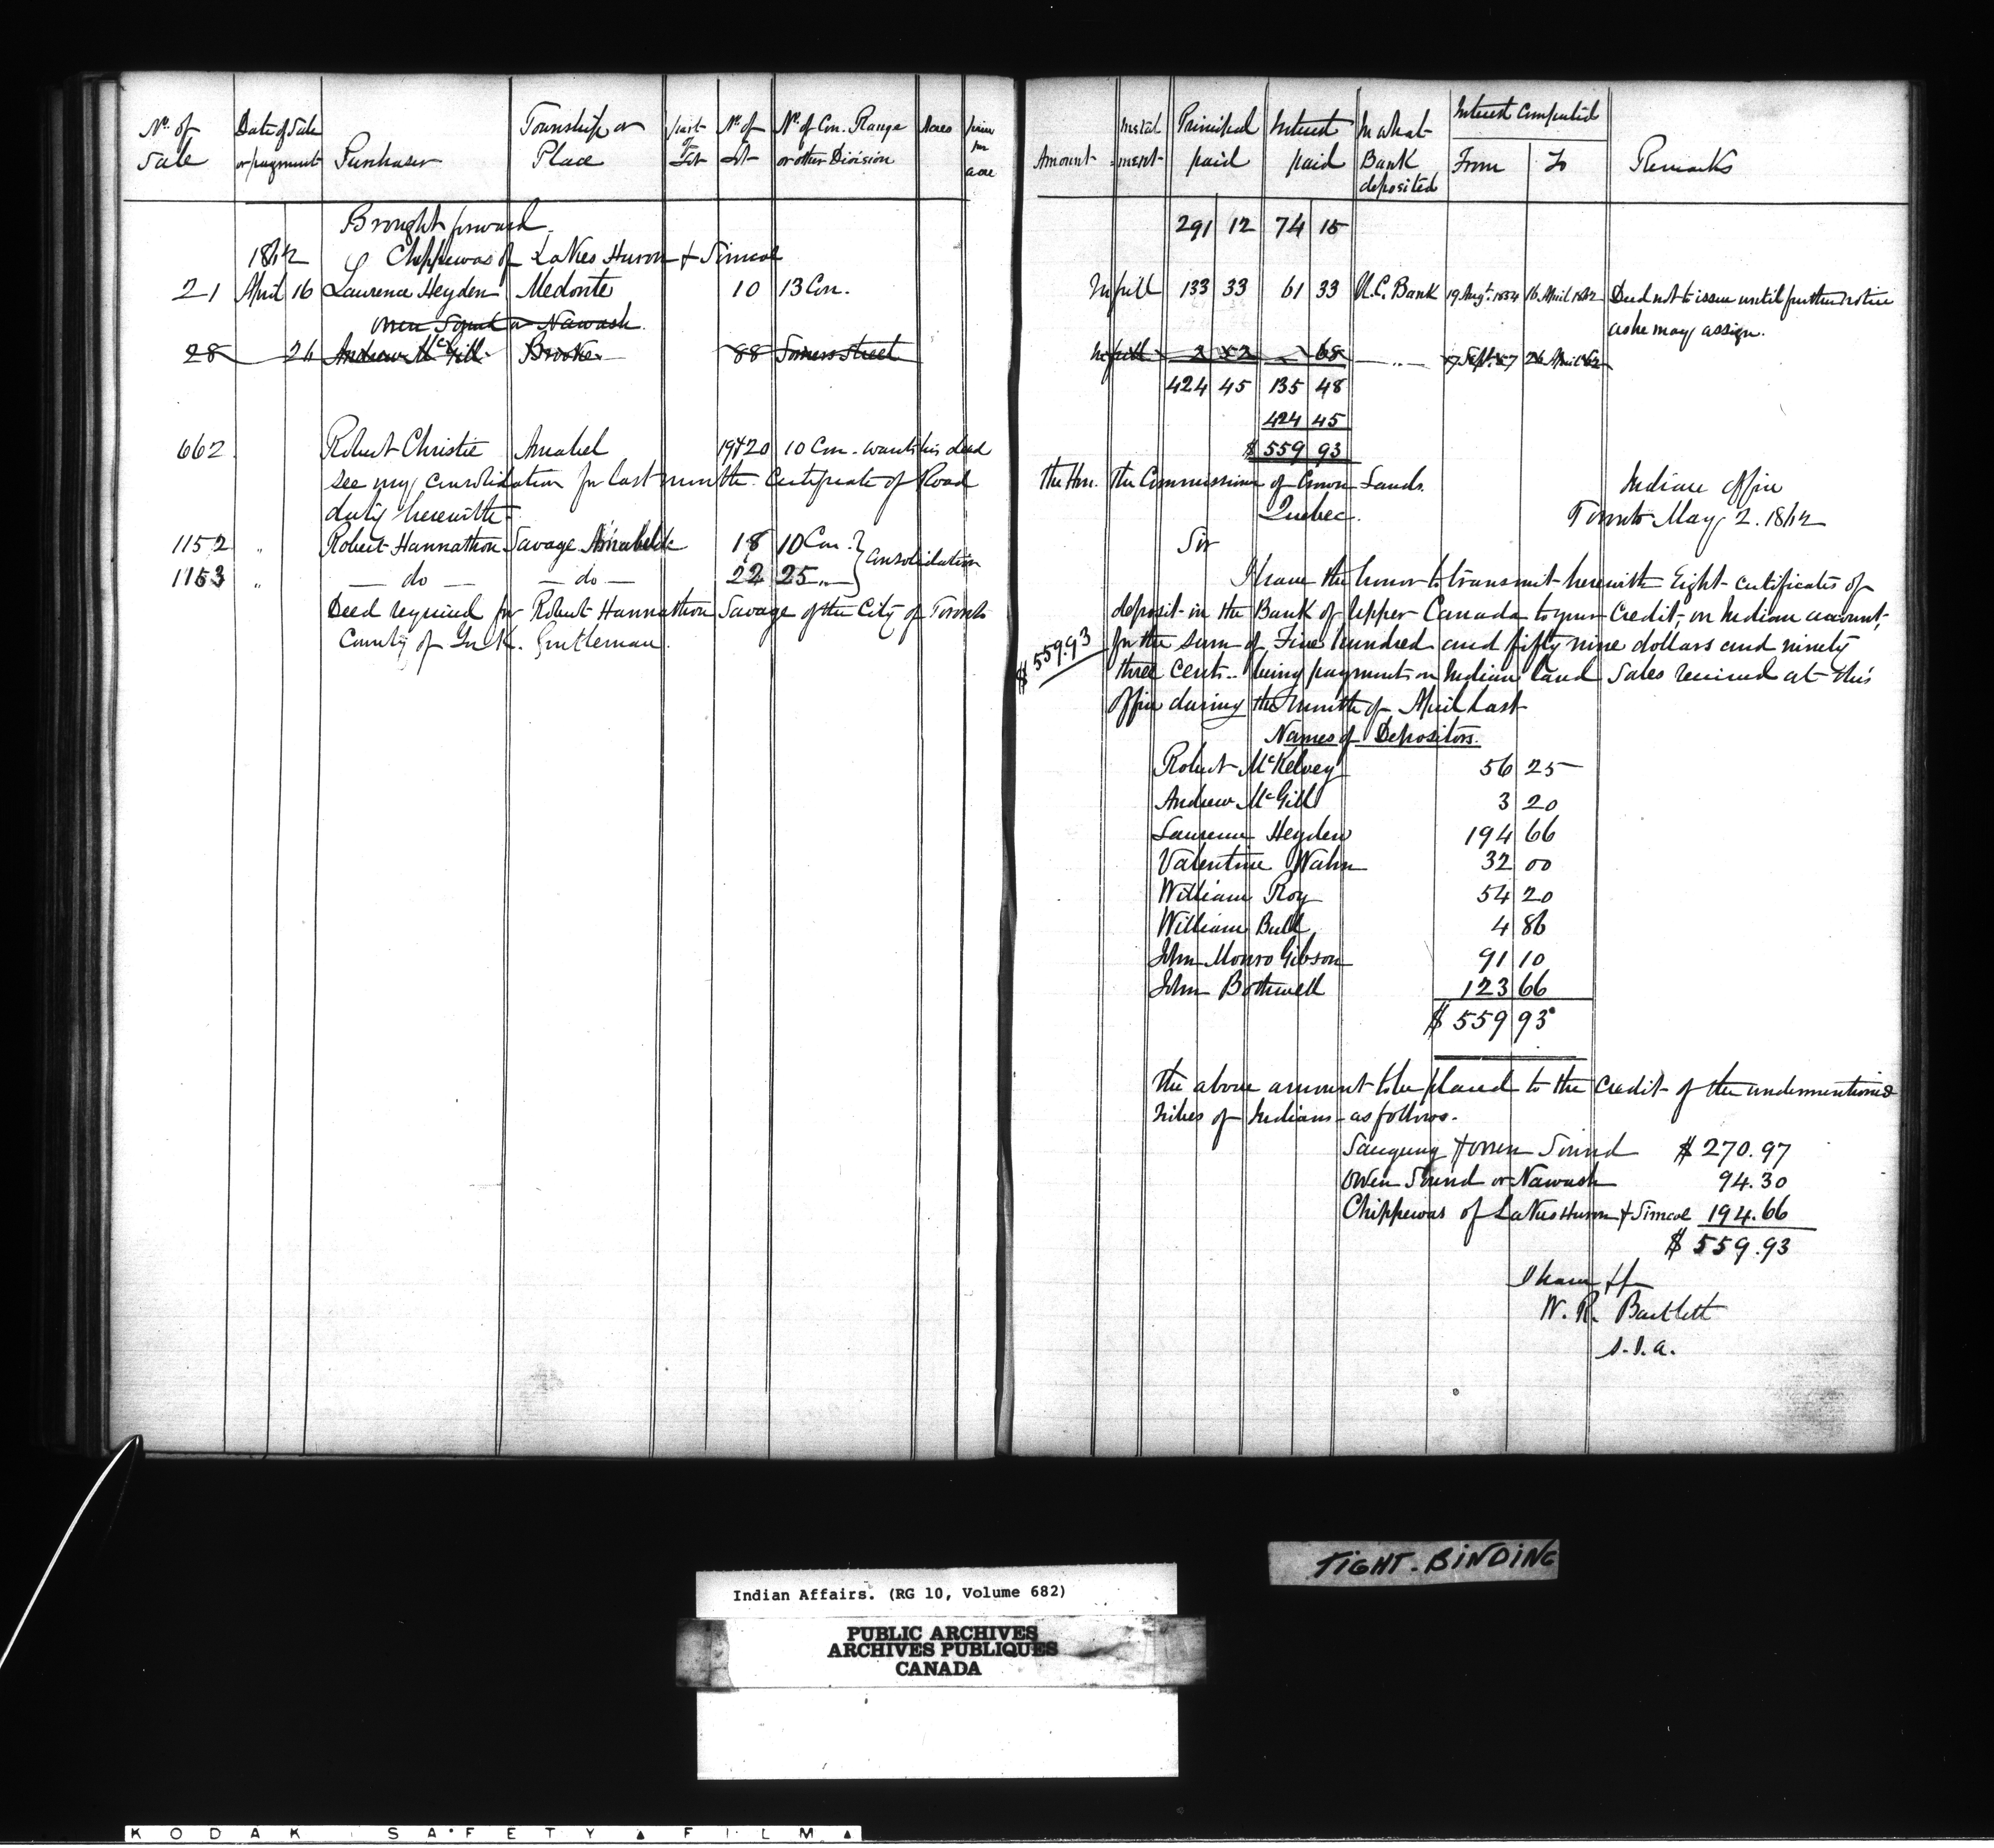 No. of Sale | Date of Sale or payment | Purchaser | Township or Place | part of Lot | No. of Lot | No. of Con. Range or other Division | Acres | price per acre
Brought forward
1862 Chippewas of Lakes Huron & Simcoe
21 April 16 Laurence Heyden Medonte 10 13 Con.
Owen Sound or Nawash
28 26 Andrew McGill Brooke 88 Somers Street
662 Robert Christie Amabel 19 & 20 10 Con. wants his deed
see my consolidation for last month. Certificate of Road
duty herewith
1152 " Robert Hannathon Savage Amabel 18 10 Con. } Consolidation
1153 " — do — — do — 22 25 "
Deed required for Robert Hannathon Savage of the City of Toronto
County of York. Gentleman.
Amount | Instalment | Principal paid | Interest paid | In what Bank deposited | Interest Computed From | To | Remarks
291 12 74 15
In full 133 33 61 33 U.C. Bank 19 Augt. 1854 16 April 1862 Deed not to issue until further notice
as he may assign.
In full 2 52 68 — " — 7 Sept. 57 26 April 62
424 45 135 48
424 45
$ 559 93
The Hon. The Commissioner of Crown Lands.
Quebec.
Indian Office
Toronto May 2. 1862
Sir
I have the honor to transmit herewith Eight certificates of
deposit in the Bank of Upper Canada to your credit, on Indian account,
$559.93
for the sum of Five hundred and fifty nine dollars and ninety
three cents.. being payments on Indian land Sales received at this
Office during the month of April last
Names of Depositors.
Robert McKelvey 56 25
Andrew McGill 3 20
Laurence Heyden 194 66
Valentine Wahn 32 00
William Roy 54 20
William Bull 4 86
John Monro Gibson 91 10
John Bothwell 123 66
$ 559 93
The above amount to be placed to the credit of the undermentioned
Tribes of Indians - as follows.
Saugeeng & Owen Sound $ 270.97
Owen Sound or Nawash 94.30
Chippewas of Lakes Huron & Simcoe 194.66
$ 559.93
I have &c
W. R. Bartlett
S.I.A.
TIGHT. BINDING
Indian Affairs. (RG 10, Volume 682)
PUBLIC ARCHIVES
ARCHIVES PUBLIQUES
CANADA
KODAK SAFETY FILM